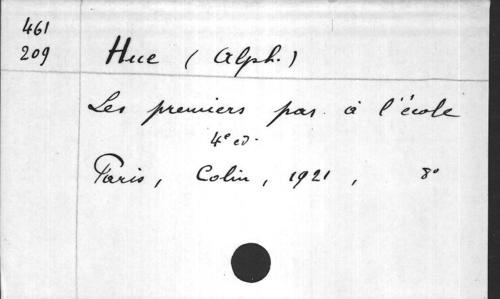 461
209
Hue (Alph.)
Les premiers pas à l'école
4e ed.
Paris, Colin, 1921, 8º